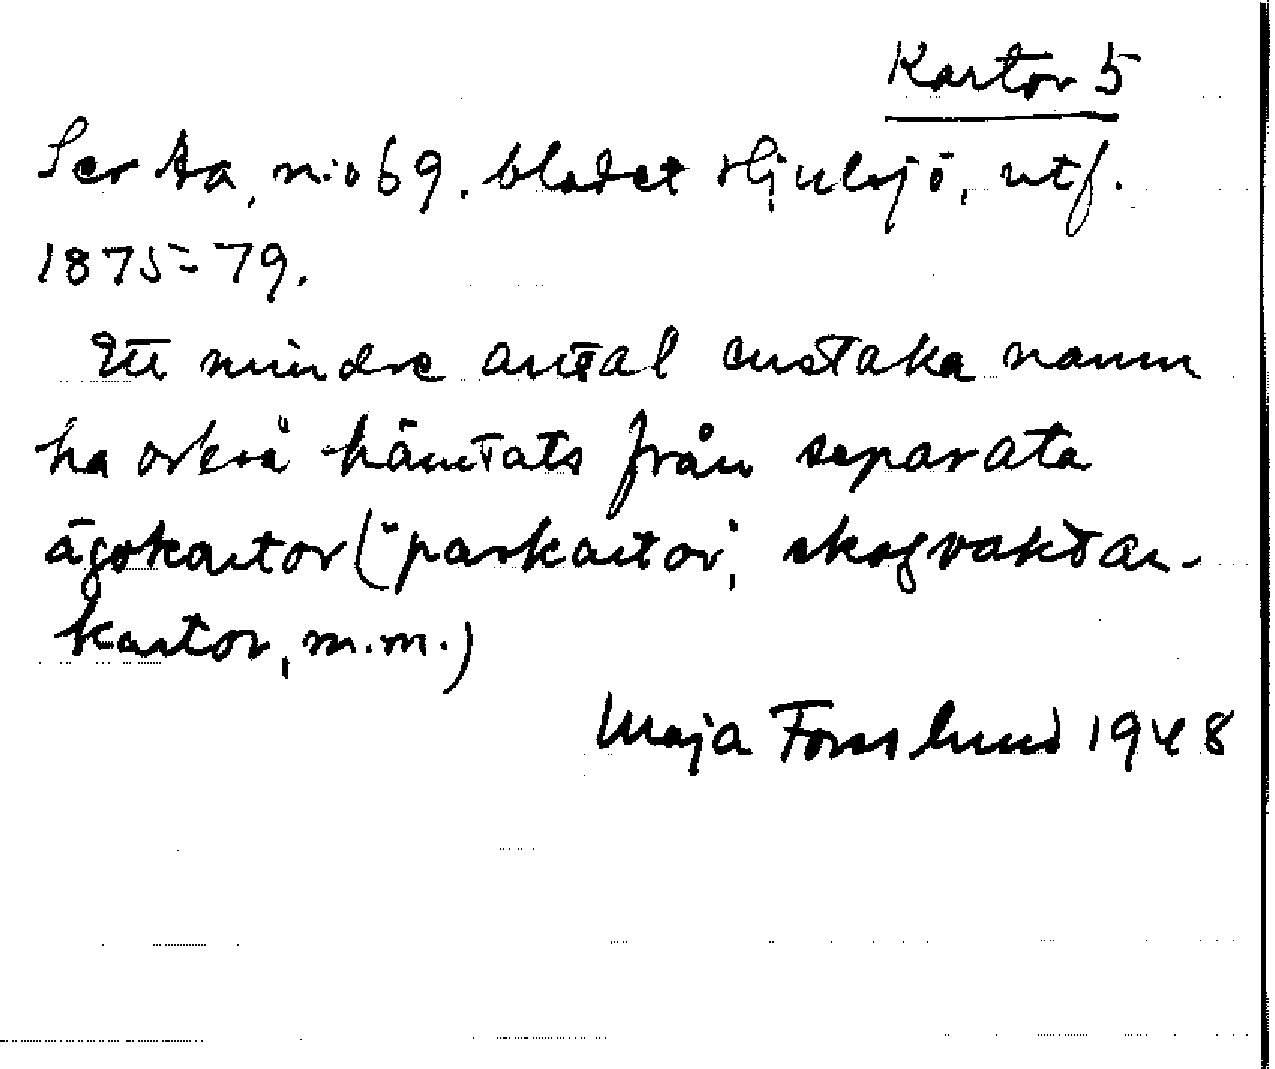 Kartor 5
Ser Aa, n:o 69. bladet Hjulsjö, utf.
1875-79.
Ett mindre antal enstaka namn
ha också hämtats från separata
ägokartor ("parkartor", skogvaktar-
kartor, m.m.)
Maja Forsslund 1948